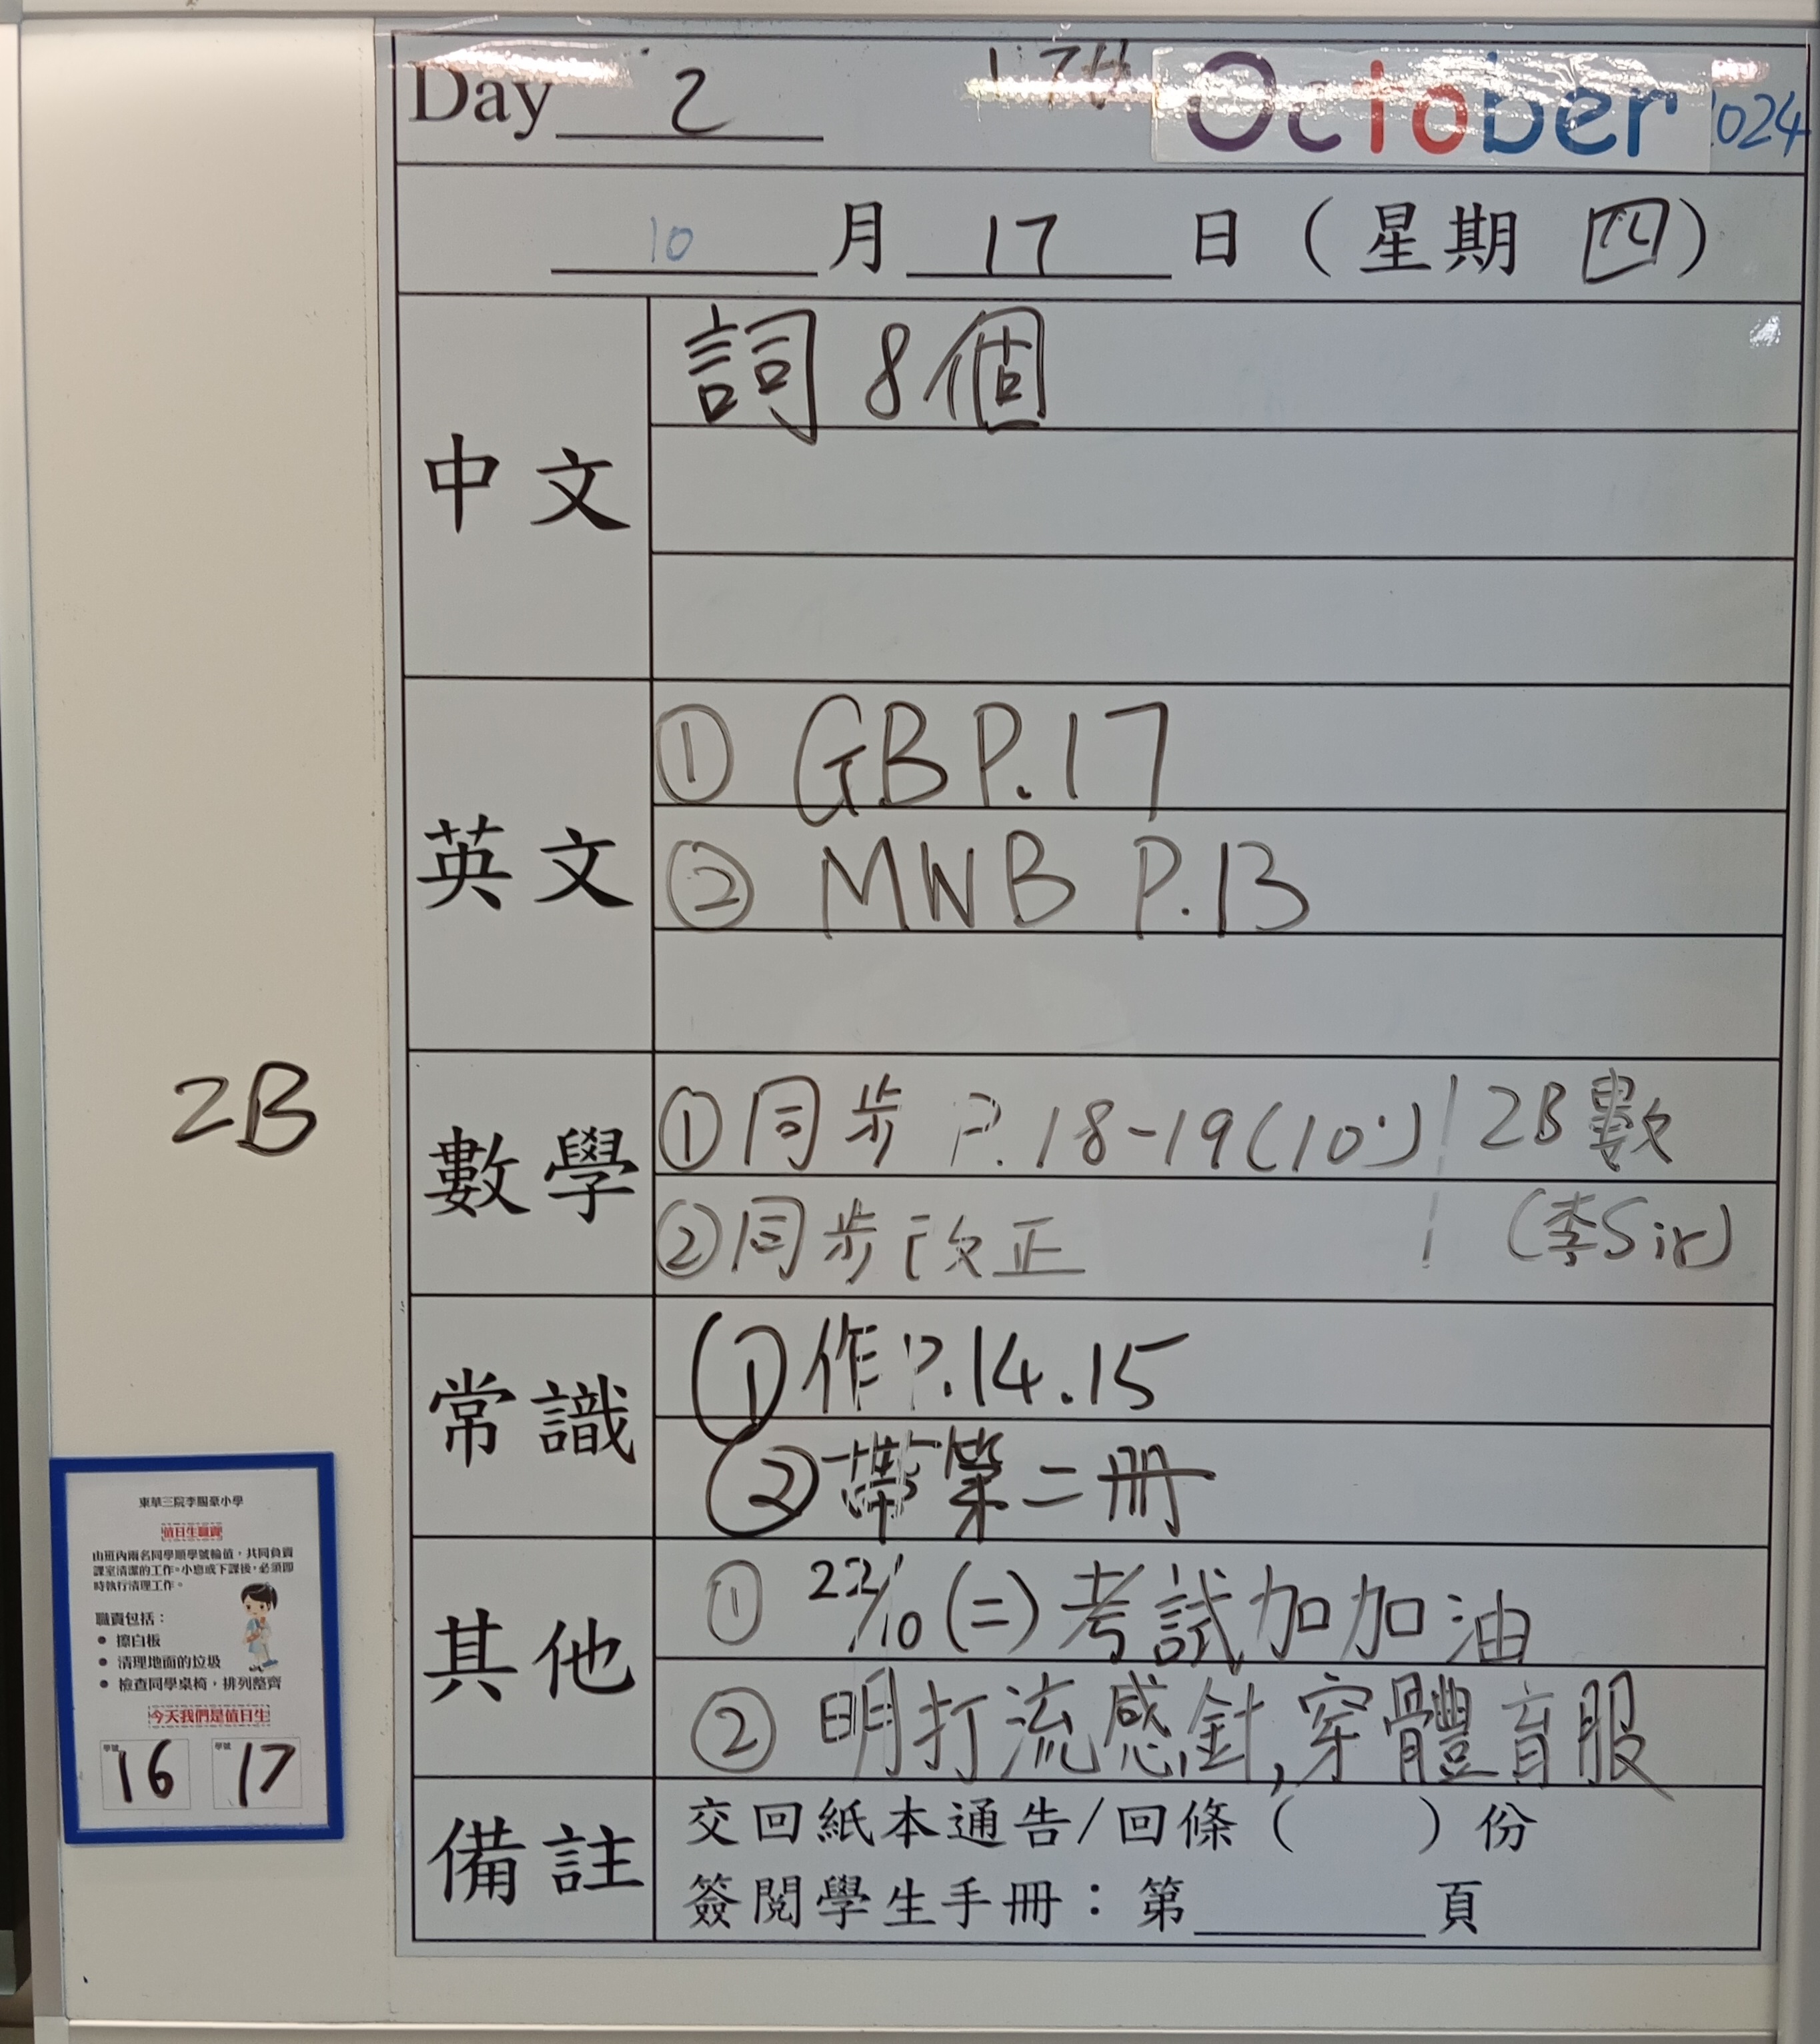 Day 2 17th October 2024
10 月 17 日 ( 星期 四 )
中文
詞 8 個
英文
① GB P.17
② MWB P.13
2B
數學
① 同步 P.18-19(10') 2B 數
② 同步改正 (李Sir)
常識
① 作 P.14.15
② 帶第二冊
其他
① 22/10 (二) 考試加加油
② 明打流感針,穿體育服
備註
交回紙本通告/回條 ( ) 份
簽閱學生手冊：第 頁
東華三院李賜豪小學
值日生職責
由班內兩名同學順學號輪值，共同負責
課室清潔的工作。小息或下課後，必須即
時執行清理工作。
職責包括：
● 擦白板
● 清理地面的垃圾
● 檢查同學桌椅，排列整齊
今天我們是值日生
學號 學號
16 17